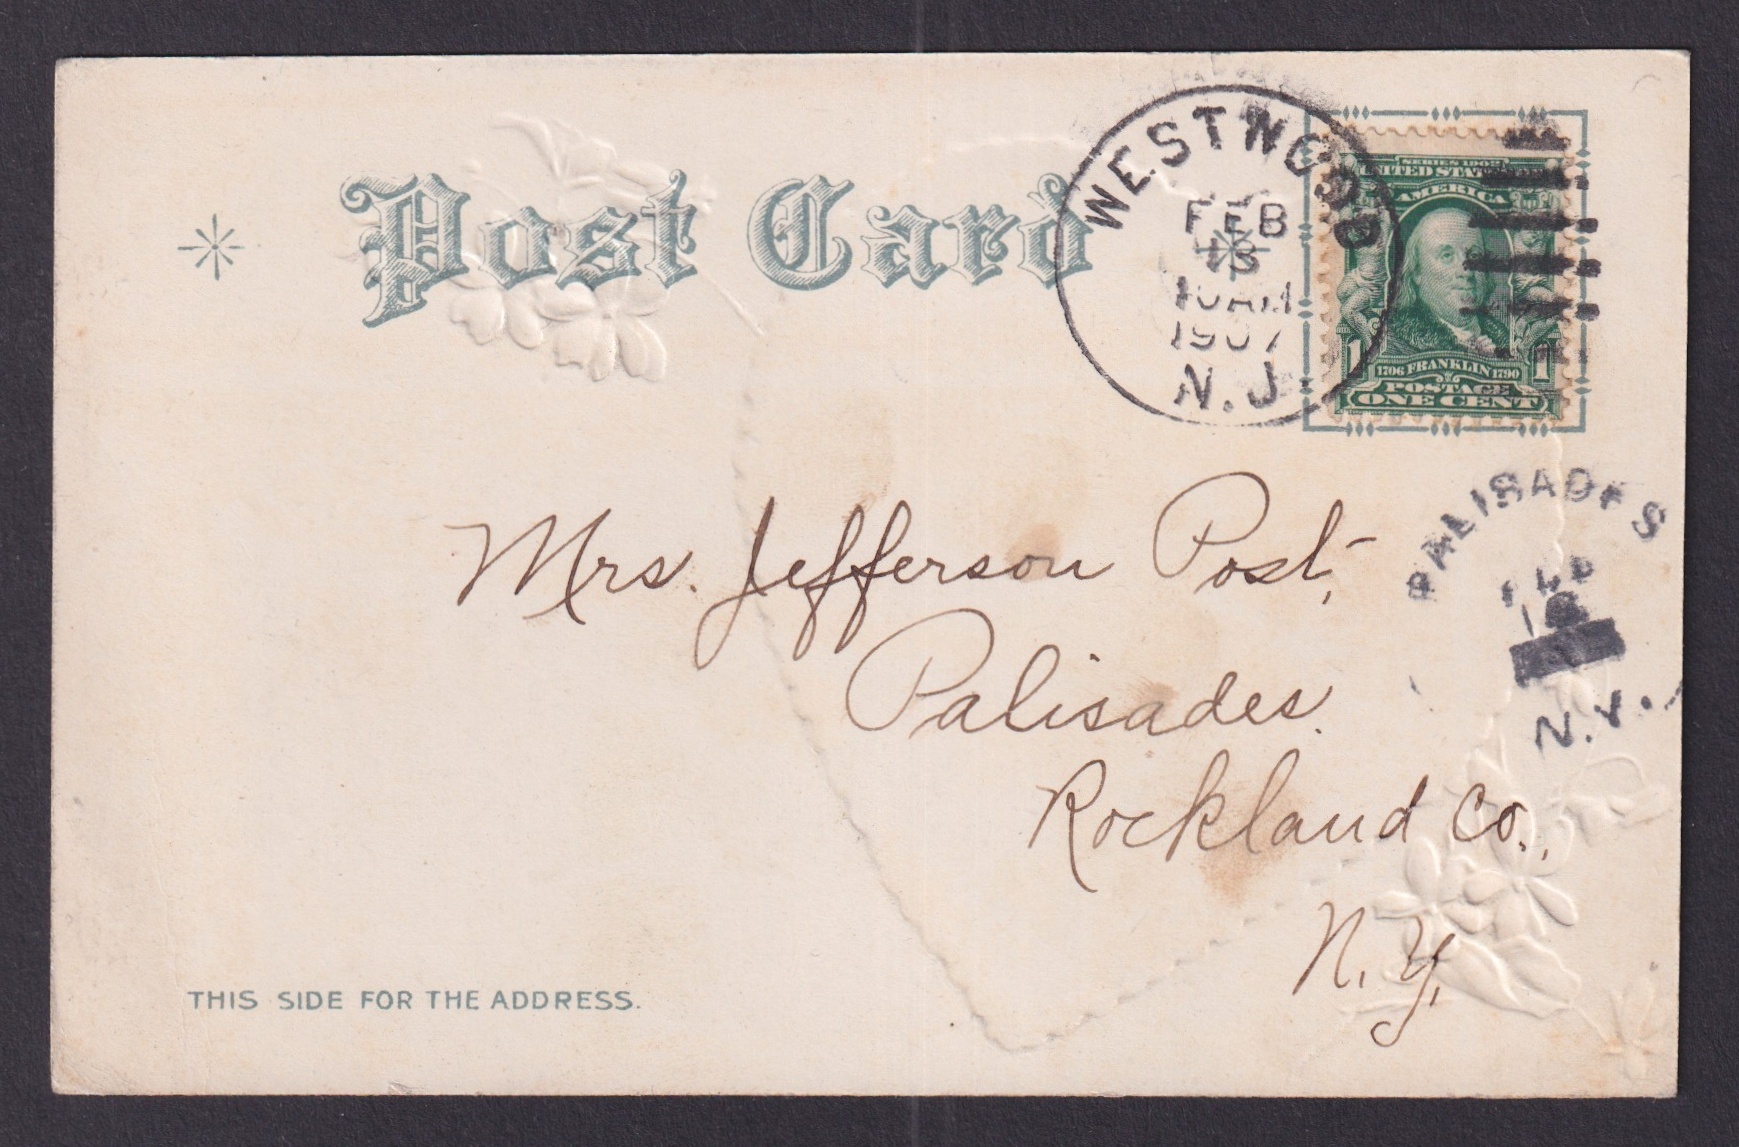 Post Card
WESTWOOD
FEB
13
10 AM
1907
N.J.
SERIES 1902
UNITED STATES
AMERICA
1706 FRANKLIN 1790
1 1
POSTAGE
ONE CENT
PALISADES
N.Y.
Mrs. Jefferson Post,
Palisades.
Rockland Co.,
N. Y,
THIS SIDE FOR THE ADDRESS.